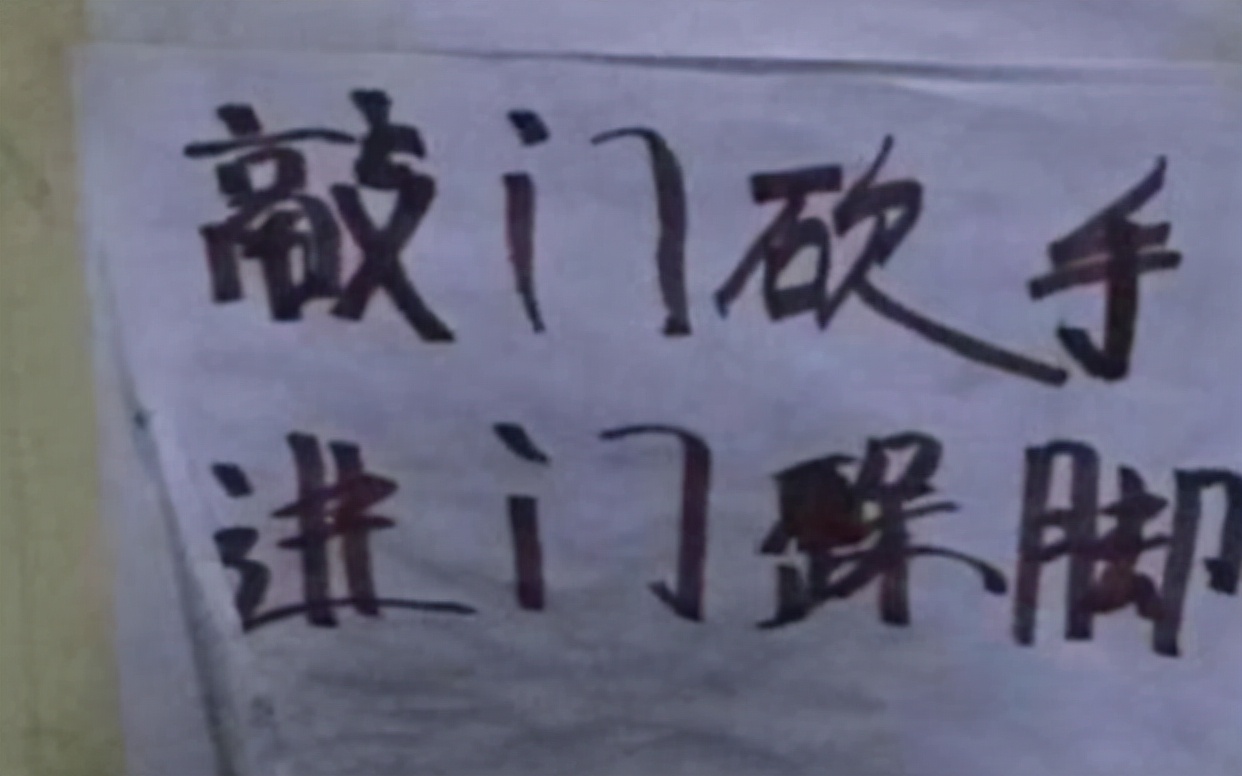 敲门砍手
进门跺脚